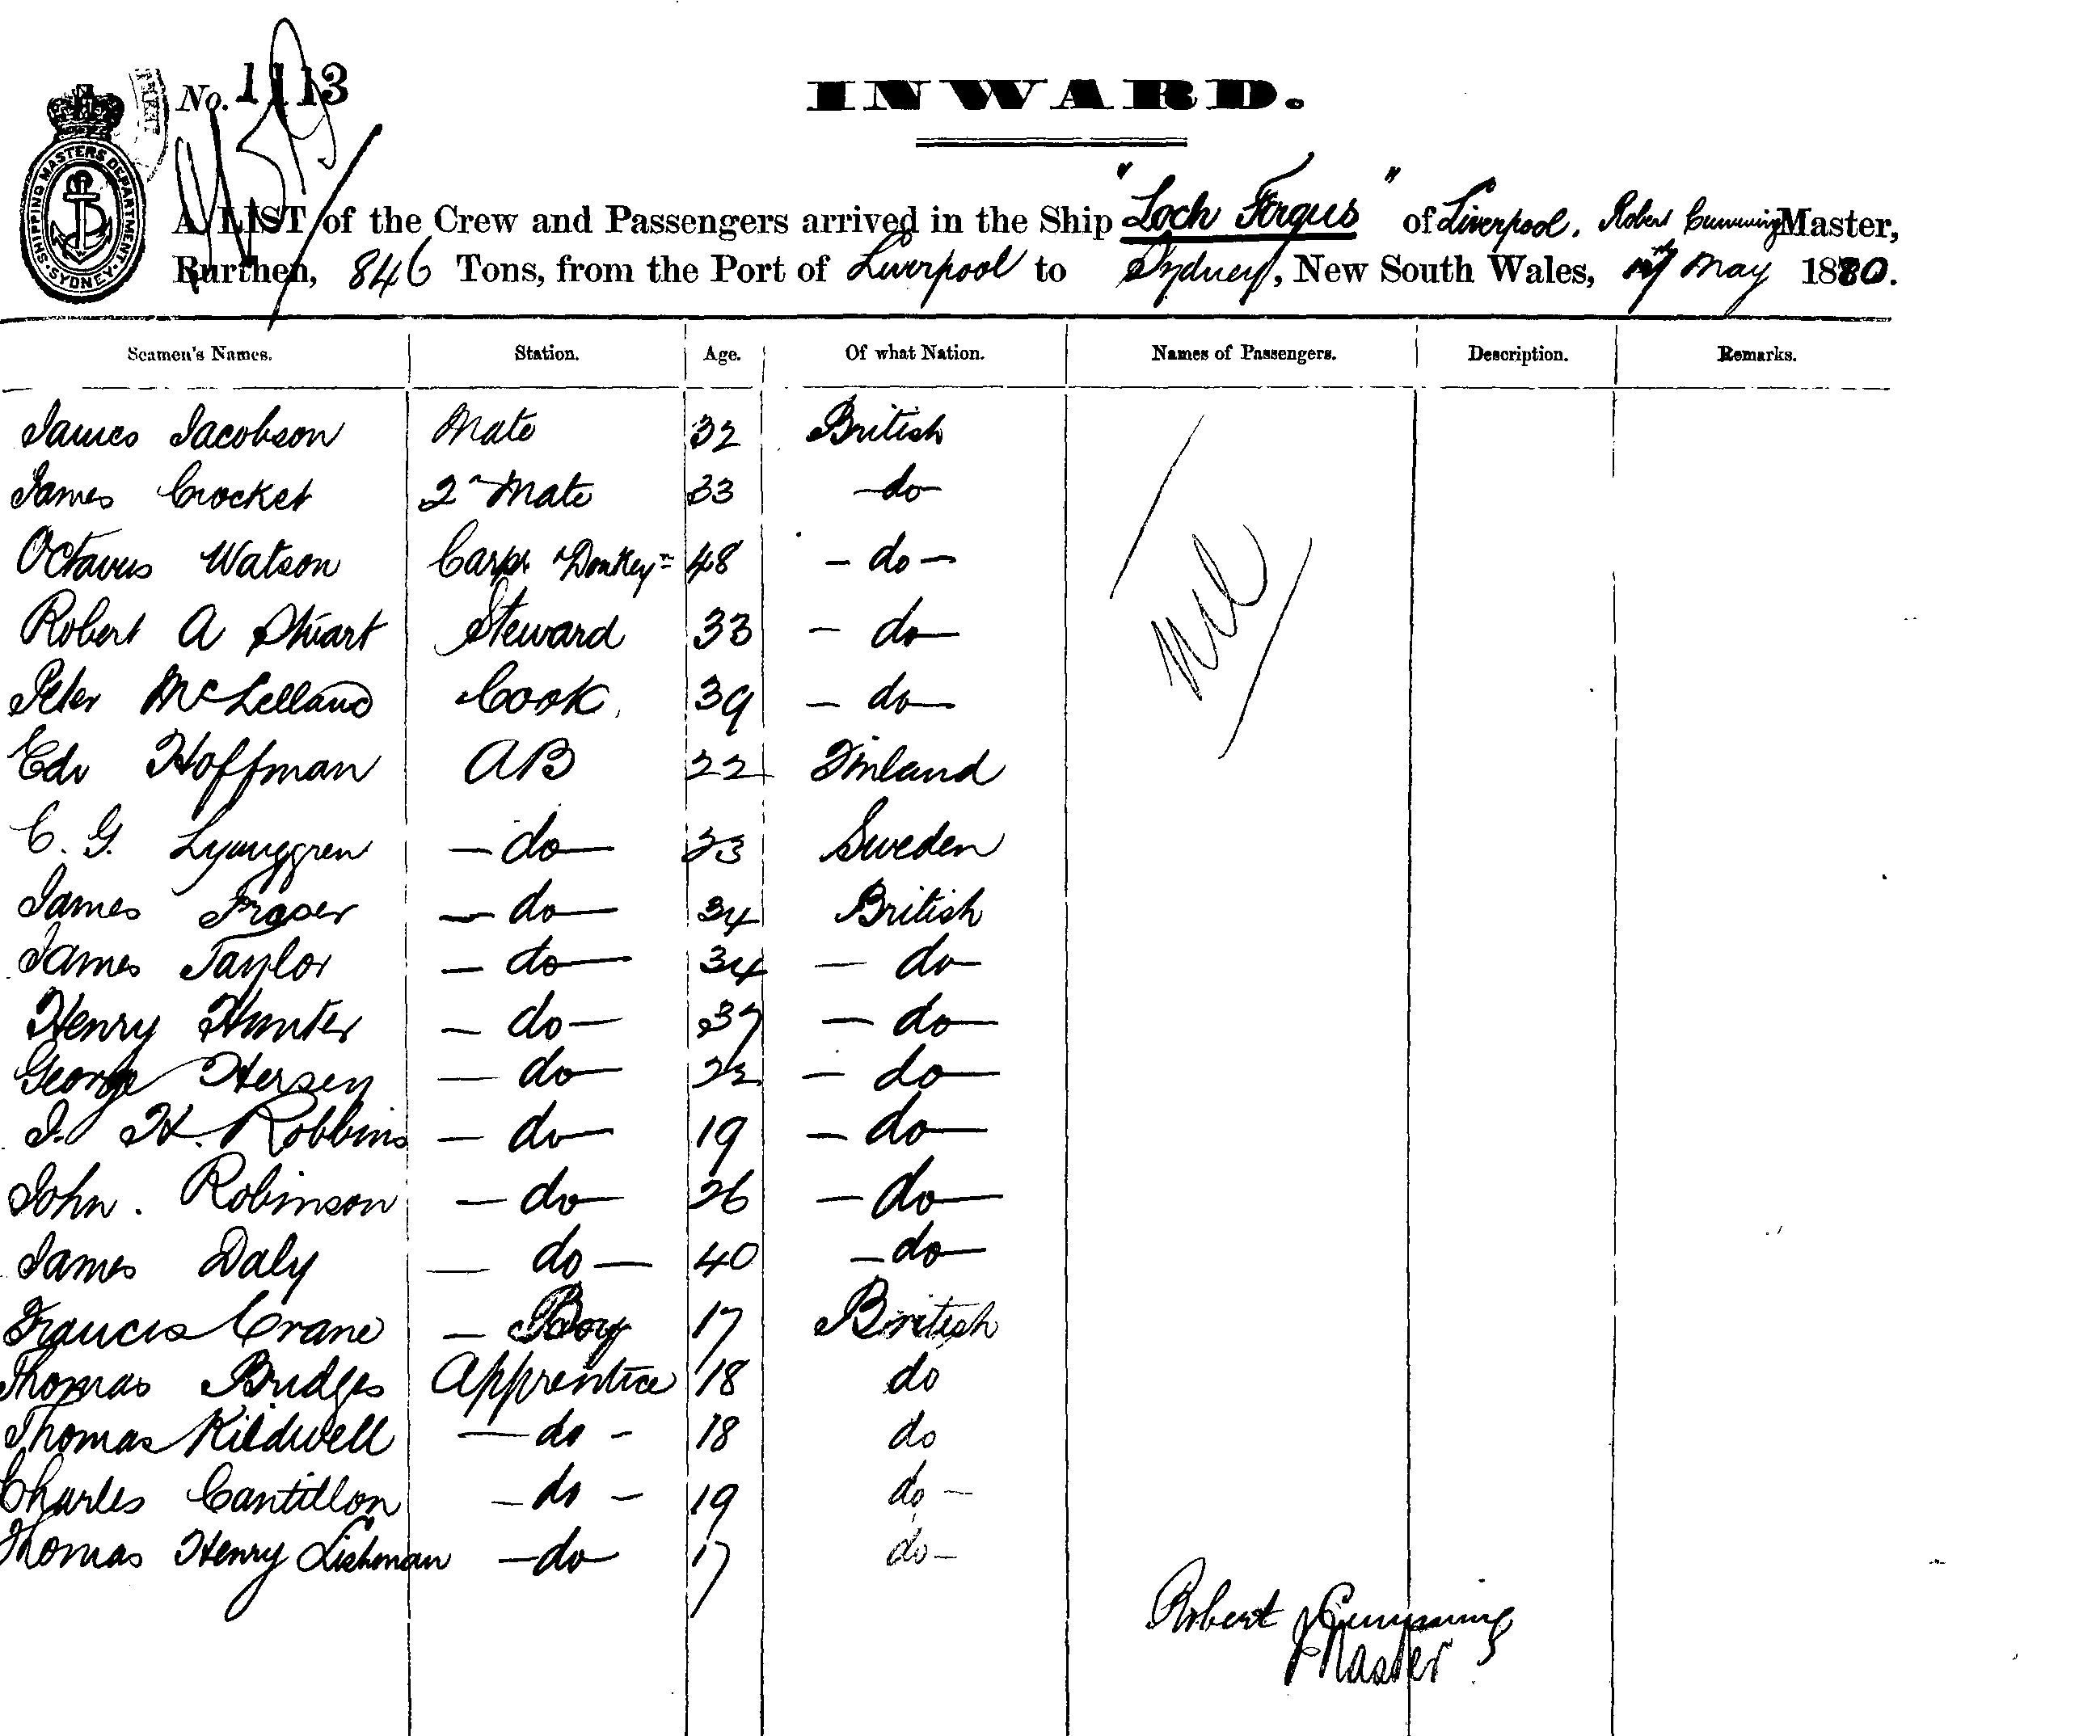 No. 1113
INWARD.
SHIPPING MASTERS DEPARTMENT. SYDNEY.
A LIST of the Crew and Passengers arrived in the Ship "Loch Fergus" of Liverpool, Robert Cumming Master,
Burthen, 846 Tons, from the Port of Liverpool to Sydney, New South Wales, May 1880.
Seamen's Names. Station. Age. Of what Nation. Names of Passengers. Description. Remarks.
James Jacobson Mate 32 British
James Crocket 2n Mate 33 - do -
Octavus Watson Carpr & Donkeyn 48 - do -
Robert A Stuart Steward 33 - do -
Peter McLelland Cook 39 - do -
Nil
Edv Hoffman AB 22 Finland
C. G. Lyunggren - do - 23 Sweden
James Fraser - do - 34 British
James Taylor - do - 34 - do -
Henry Hunter - do - 37 - do -
George Hersey - do - 22 - do -
J. H. Robbins - do - 19 - do -
John. Robinson - do - 26 - do -
James Daly - do - 40 - do -
Francis Crane - Boy 17 British
Thomas Bridges Apprentice 18 do
Thomas Kildwell - do - 18 do
Charles Cantillon - do - 19 do -
Thomas Henry Lishman - do 17 do -
Robert Cumming
Master